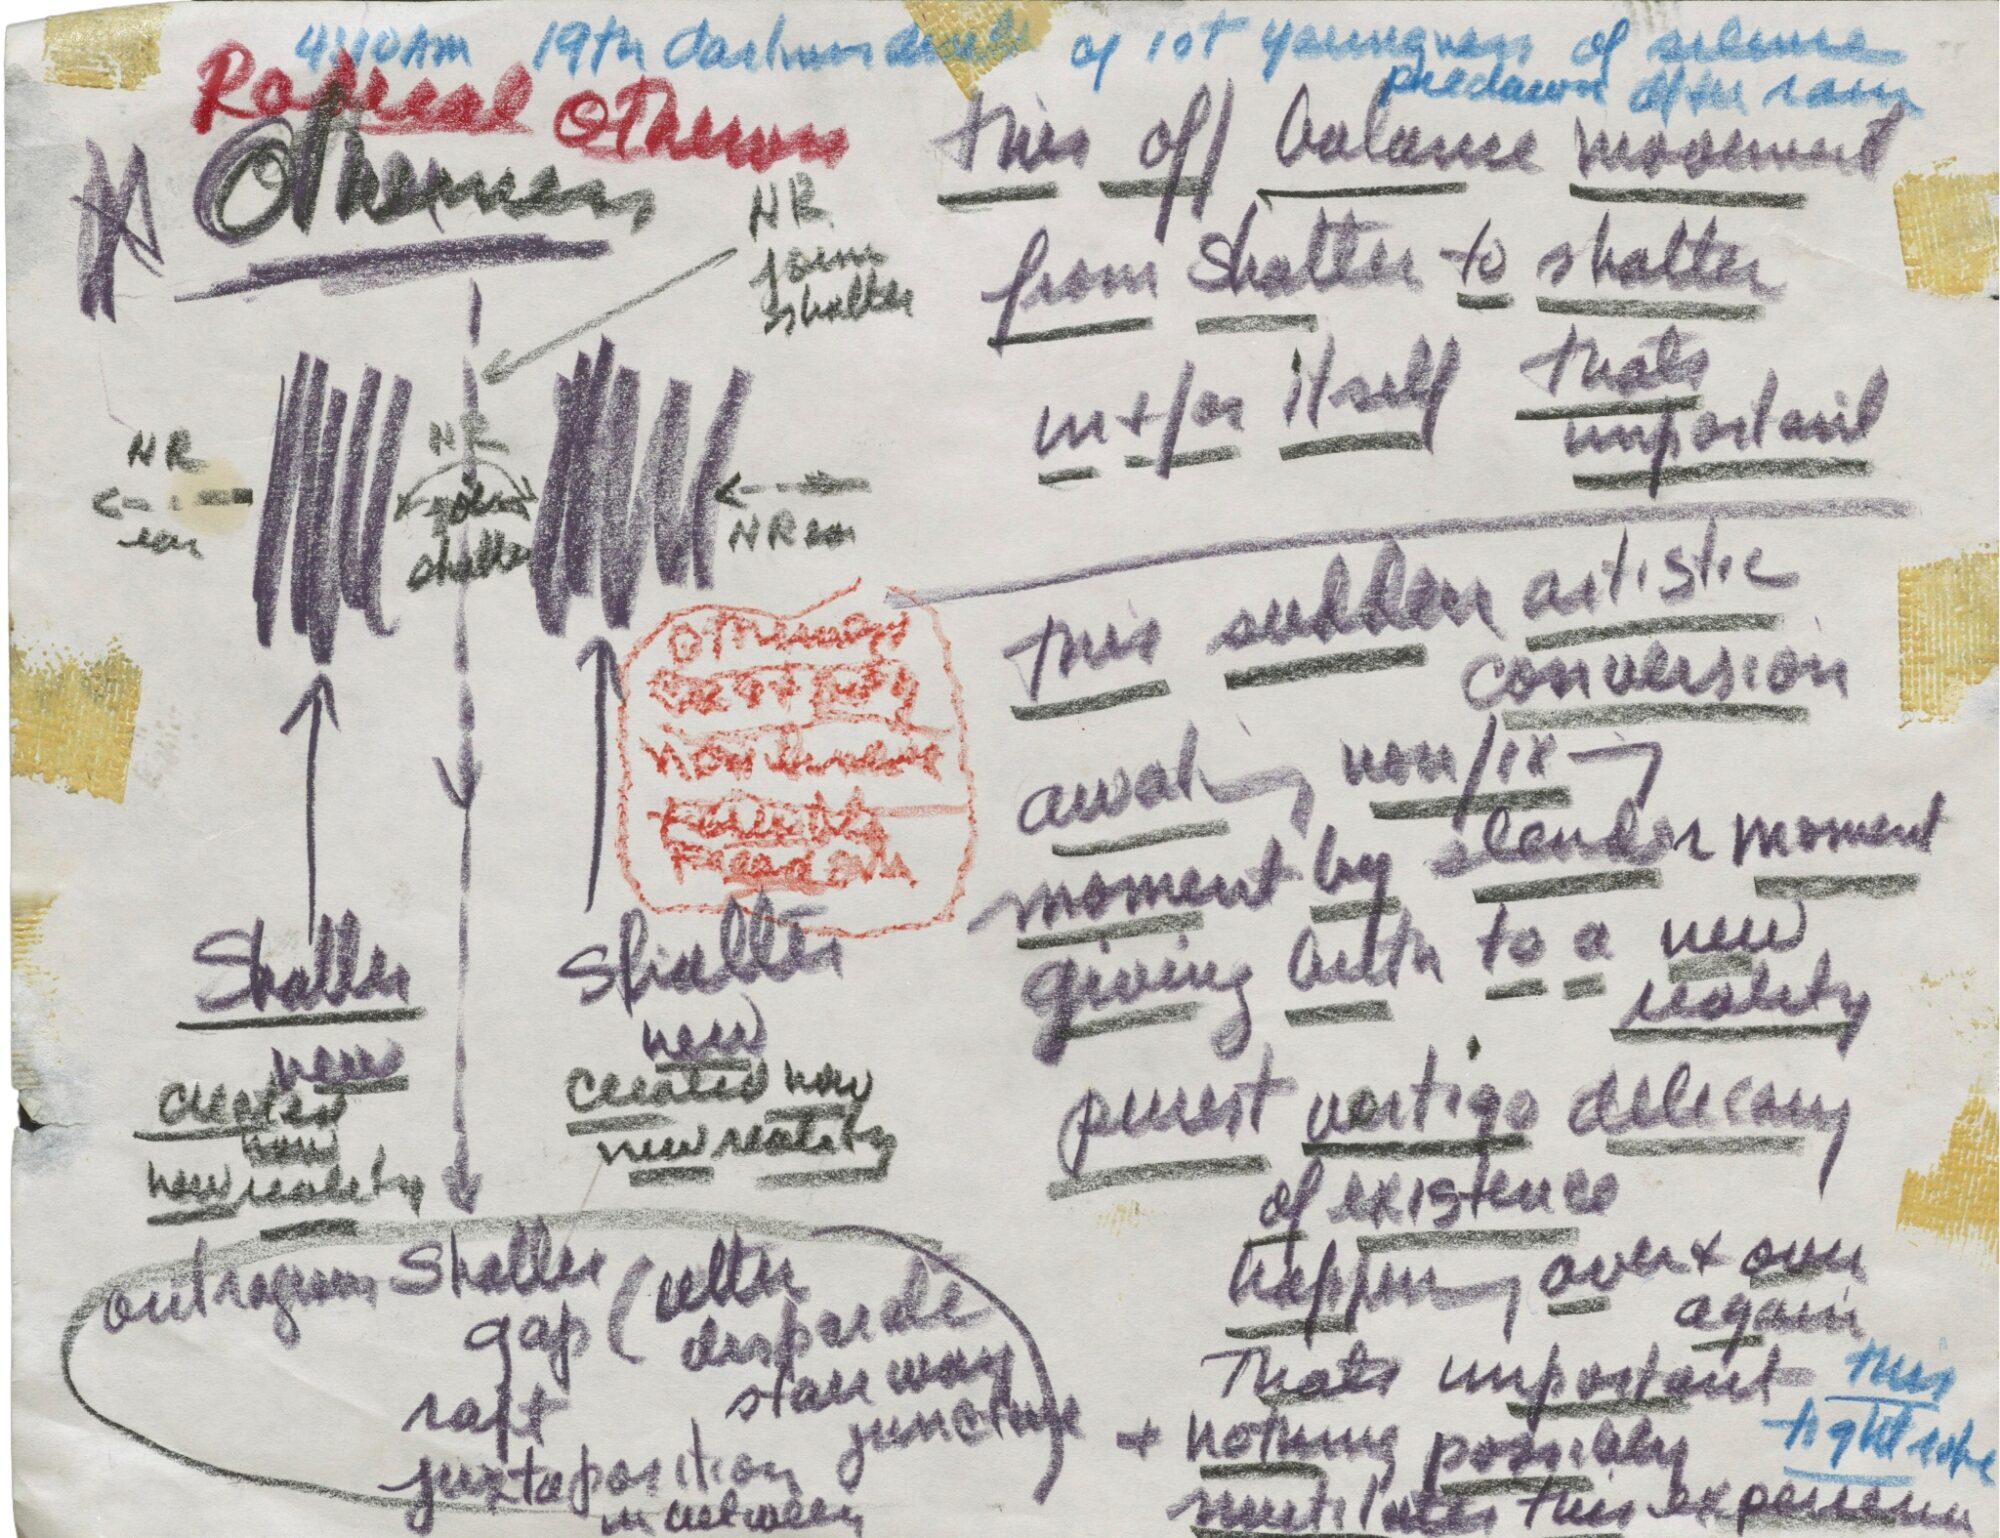 4:10AM 19th darkness of 1st youngness of silence
predawn after rain
Radical Otherness
Otherness
NR
form
shatter
NR
ear
NR
form
shatter
NR ear
Otherness
nonlinear
freedom
Shatter
new
created
now
new reality
Shatter
new
created now
new reality
outrageous Shatter
gap (
disparate
stairway
juncture
raft
juxtaposition
in between
this off balance movement
from Shatter to shatter
in + for itself thats
important
this sudden artistic
conversion
awaking non/fix-ing
moment by slender moment
giving birth to a new
reality
purest vertigo delicacy
of existence
happening over + over
again
Thats important this
tightrope
+ nothing possibly
mutilates this experience